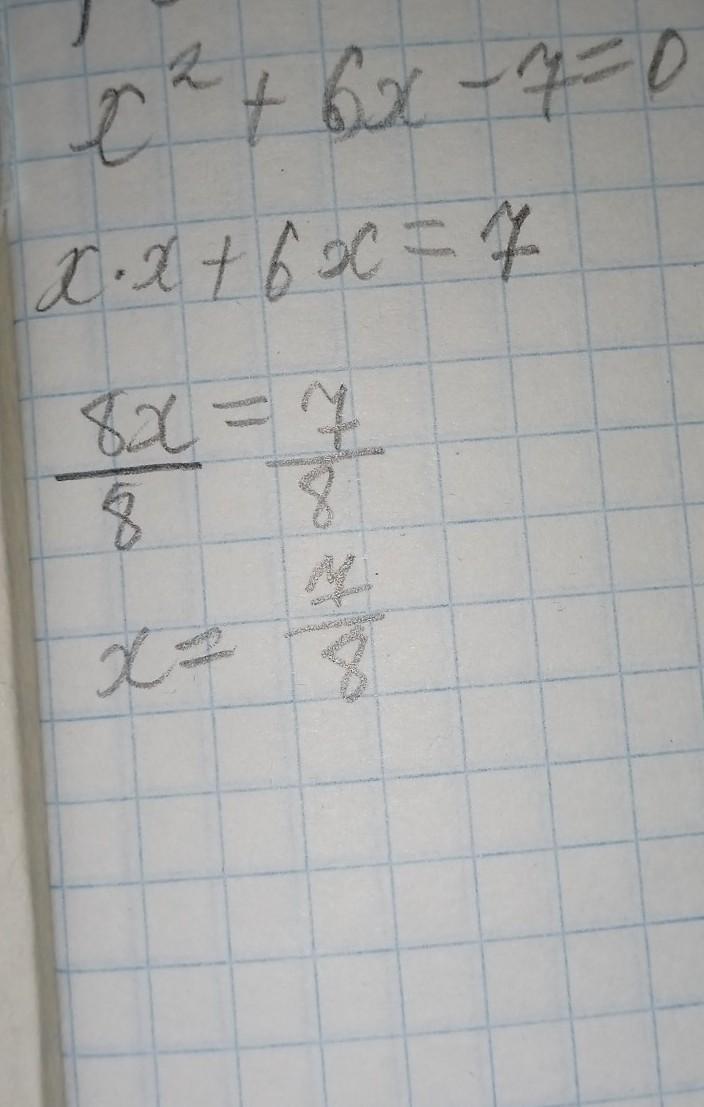 x² + 6x - 7 = 0
x · x + 6x = 7
8x/8 = 7/8
x = 7/8